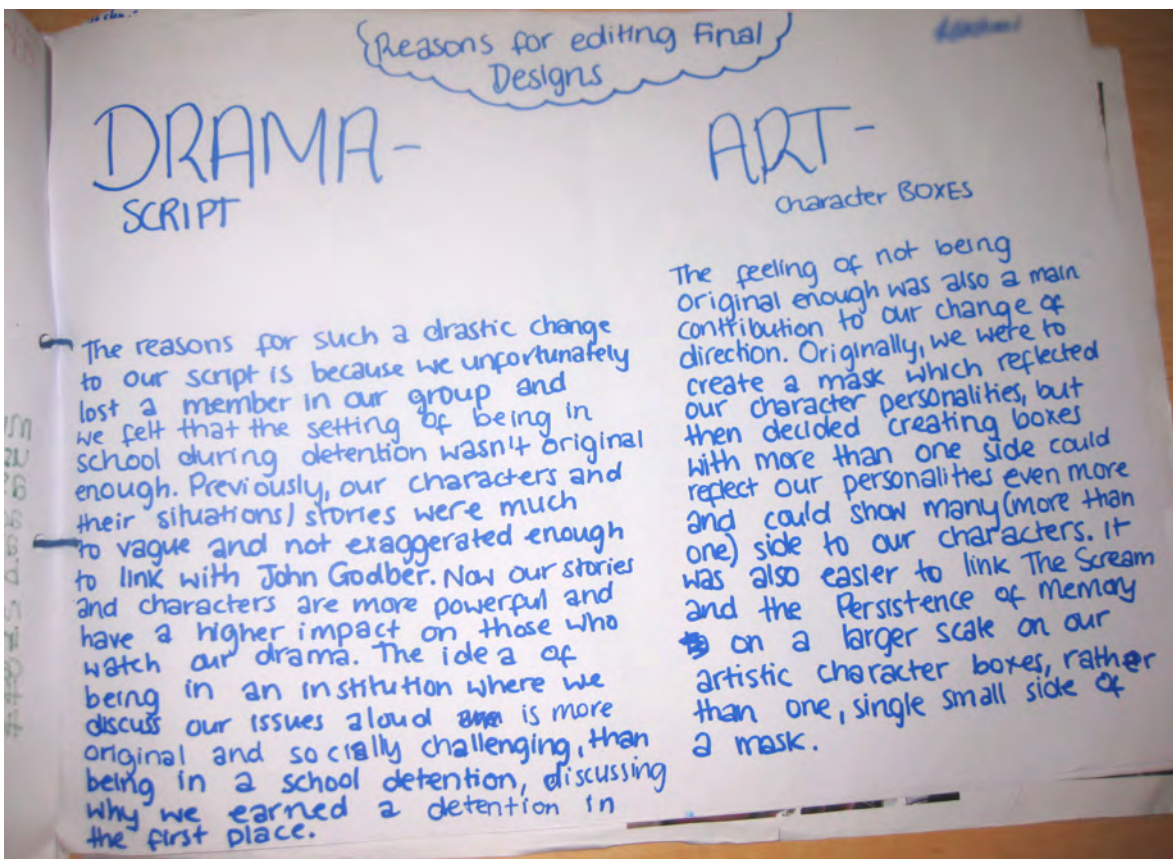 Reasons for editing Final
Designs
DRAMA-
SCRIPT
The reasons for such a drastic change
to our script is because we unfortunately
lost a member in our group and
we felt that the setting of being in
school during detention wasn't original
enough. Previously, our characters and
their situations/stories were much
to vague and not exaggerated enough
to link with John Godber. Now our stories
and characters are more powerful and
have a higher impact on those who
watch our drama. The idea of
being in an institution where we
discuss our issues aloud is more
original and socially challenging, than
being in a school detention, discussing
why we earned a detention in
the first place.
ART-
Character BOXES
The feeling of not being
original enough was also a main
contribution to our change of
direction. Originally, we were to
create a mask which reflected
our character personalities, but
then decided creating boxes
with more than one side could
reflect our personalities even more
and could show many (more than
one) side to our characters. It
was also easier to link The Scream
and the Persistence of Memory
on a larger scale on our
artistic character boxes, rather
than one, single small side of
a mask.